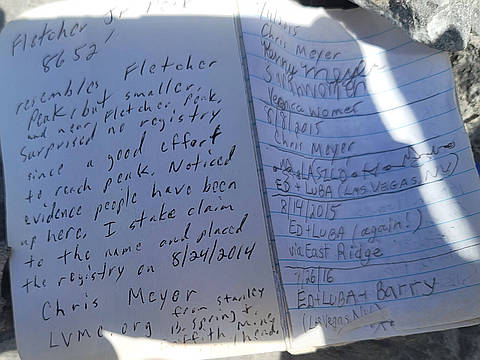 Fletcher Jr. Peak
8652'
resembles Fletcher
Peak, but smaller,
and near Fletcher Peak.
Surprised no registry
since a good effort
to reach peak. Noticed
evidence people have been
up here. I stake claim
to the name and placed
the registry on 8/24/2014
Chris Meyer
LVMC.org
from Stanley
B. Spring &
Griffith Mine
head
2015
Chris Meyer
Veronica Womer
5/8/2015
Chris Meyer
ED + LUBA (LAS VEGAS, NV)
8/14/2015
ED + LUBA (again!)
via East Ridge
7/26/16
ED + LUBA + Barry
(Las Vegas, NV)